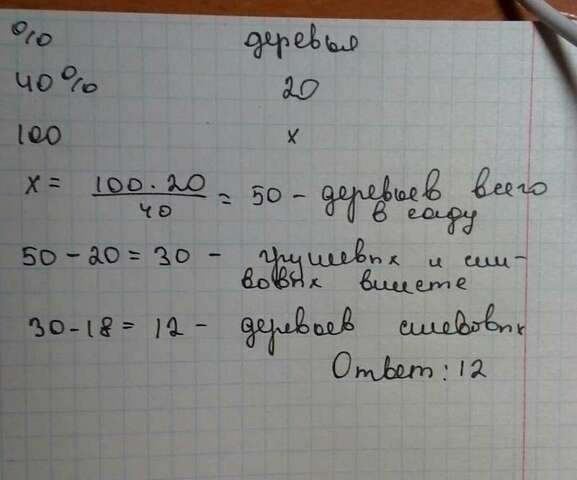 % деревья
40% 20
100 х
х = 100 · 20 / 40 = 50 - деревьев всего
в саду
50 - 20 = 30 - грушевых и сли-
вовых вместе
30 - 18 = 12 - деревьев сливовых
Ответ: 12